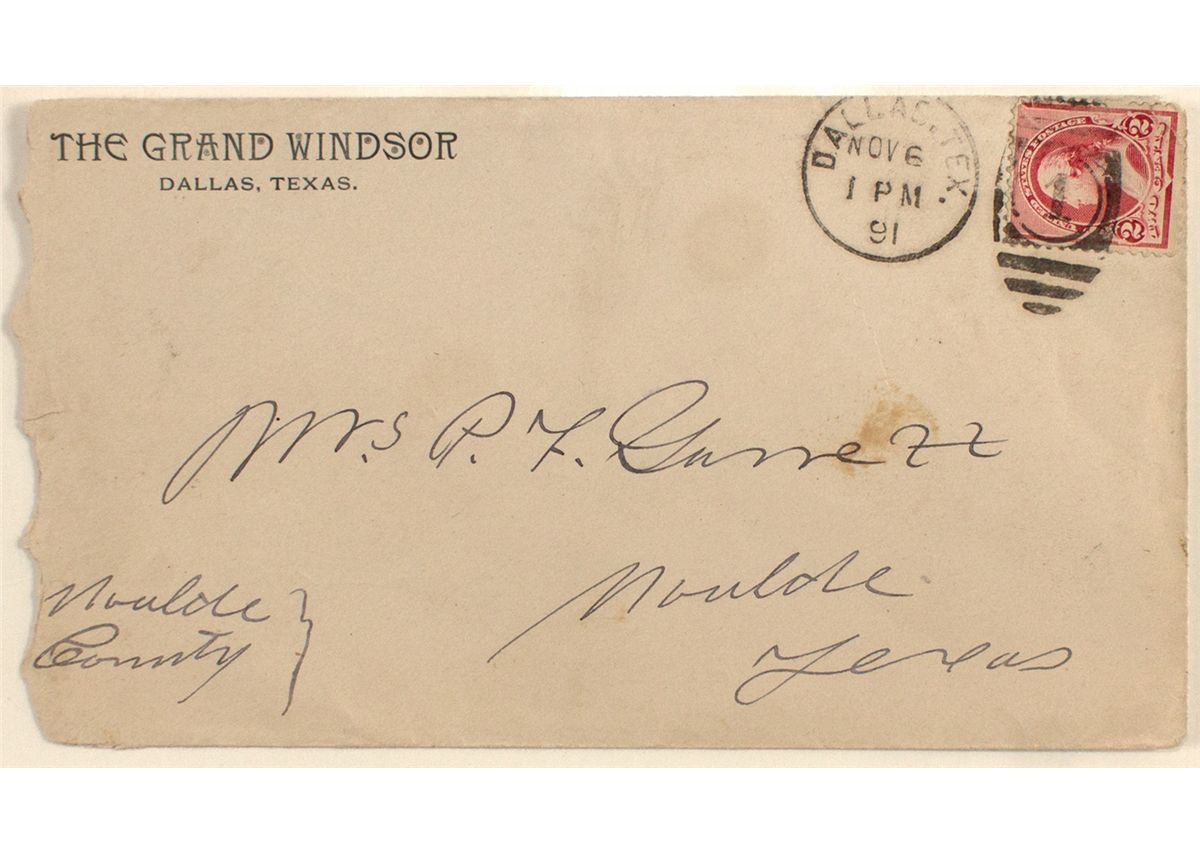 THE GRAND WINDSOR
DALLAS, TEXAS.
DALLAS, TEX.
NOV 6
1 PM
91
STATES POSTAGE
2 2
1
Mrs P. F. Garrett
Uvalde
Texas
Uvalde
County